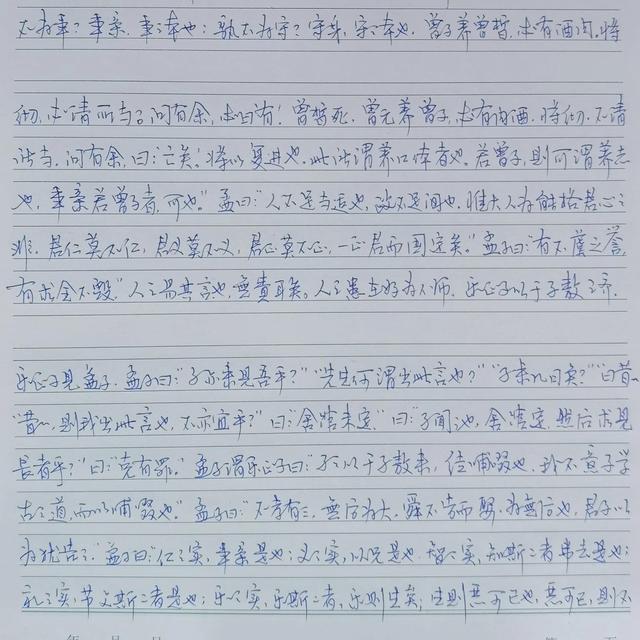 不为事？事亲，事之本也；孰不为守？守身，守之本也。曾子养曾皙，必有酒肉，将
彻，必请所与；问有余，必曰有！曾皙死，曾元养曾子，必有肉酒，将彻，不请
所与，问有余，曰：“亡矣。”将以复进也，此所谓养口体者也。若曾子，则可谓养志
也，事亲若曾子者，可也。”孟曰：“人不足与适也，政不足间也，惟大人为能格君心之
非。君仁莫不仁，君义莫不义，君正莫不正，一正君而国定矣。”孟子曰：“有不虞之誉，
有求全之毁。”人之易其言也，无责耳矣。人之患在好为人师。乐正子以于子敖之齐。
乐正子见孟子，孟子曰：“子亦来见吾乎？”“先生何谓出此言也？”“子来几日矣？”“曰昔昔”
“昔昔，则我出此言也，不亦宜乎？”曰：“舍馆未定。”曰：“子闻之也，舍馆定，然后求见
長者乎？”曰：“克有罪。”孟子谓乐正子曰：“子之以于子敖来，徒哺啜也，我不意子学
古之道，而以哺啜也。”孟子曰：“不孝有三，無后为大，舜不告而娶，为無后也，君子以
为犹告之。”孟子曰：“仁之实，事亲是也；义之实，从兄是也，智之实，知斯二者弗去是也；
礼之实，节文斯二者是也；乐之实，乐斯二者，乐则生矣；生则恶可已也，恶可已，则不